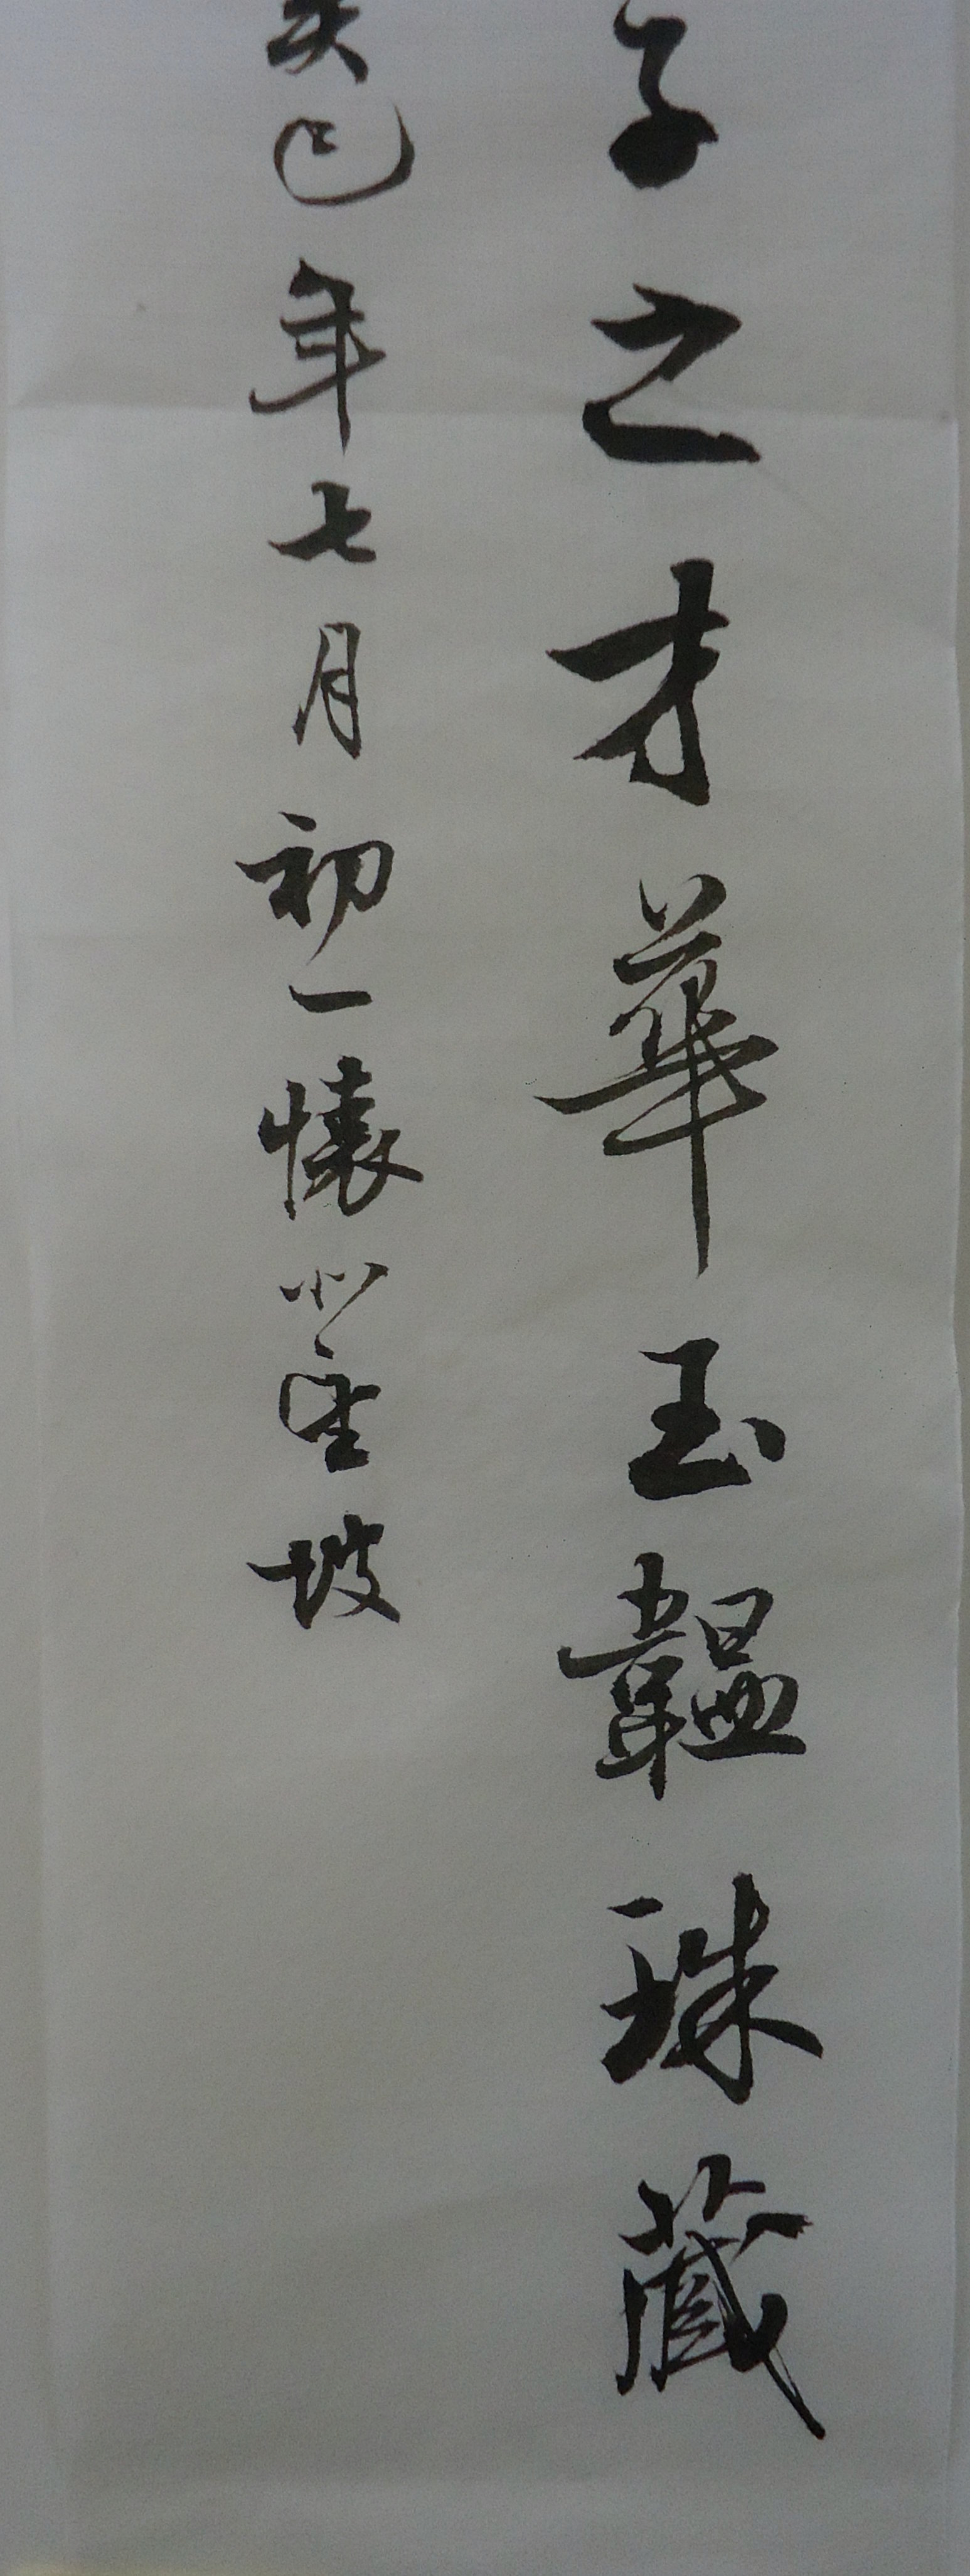 子之才華玉韞珠藏
癸巳年七月初一懷坡